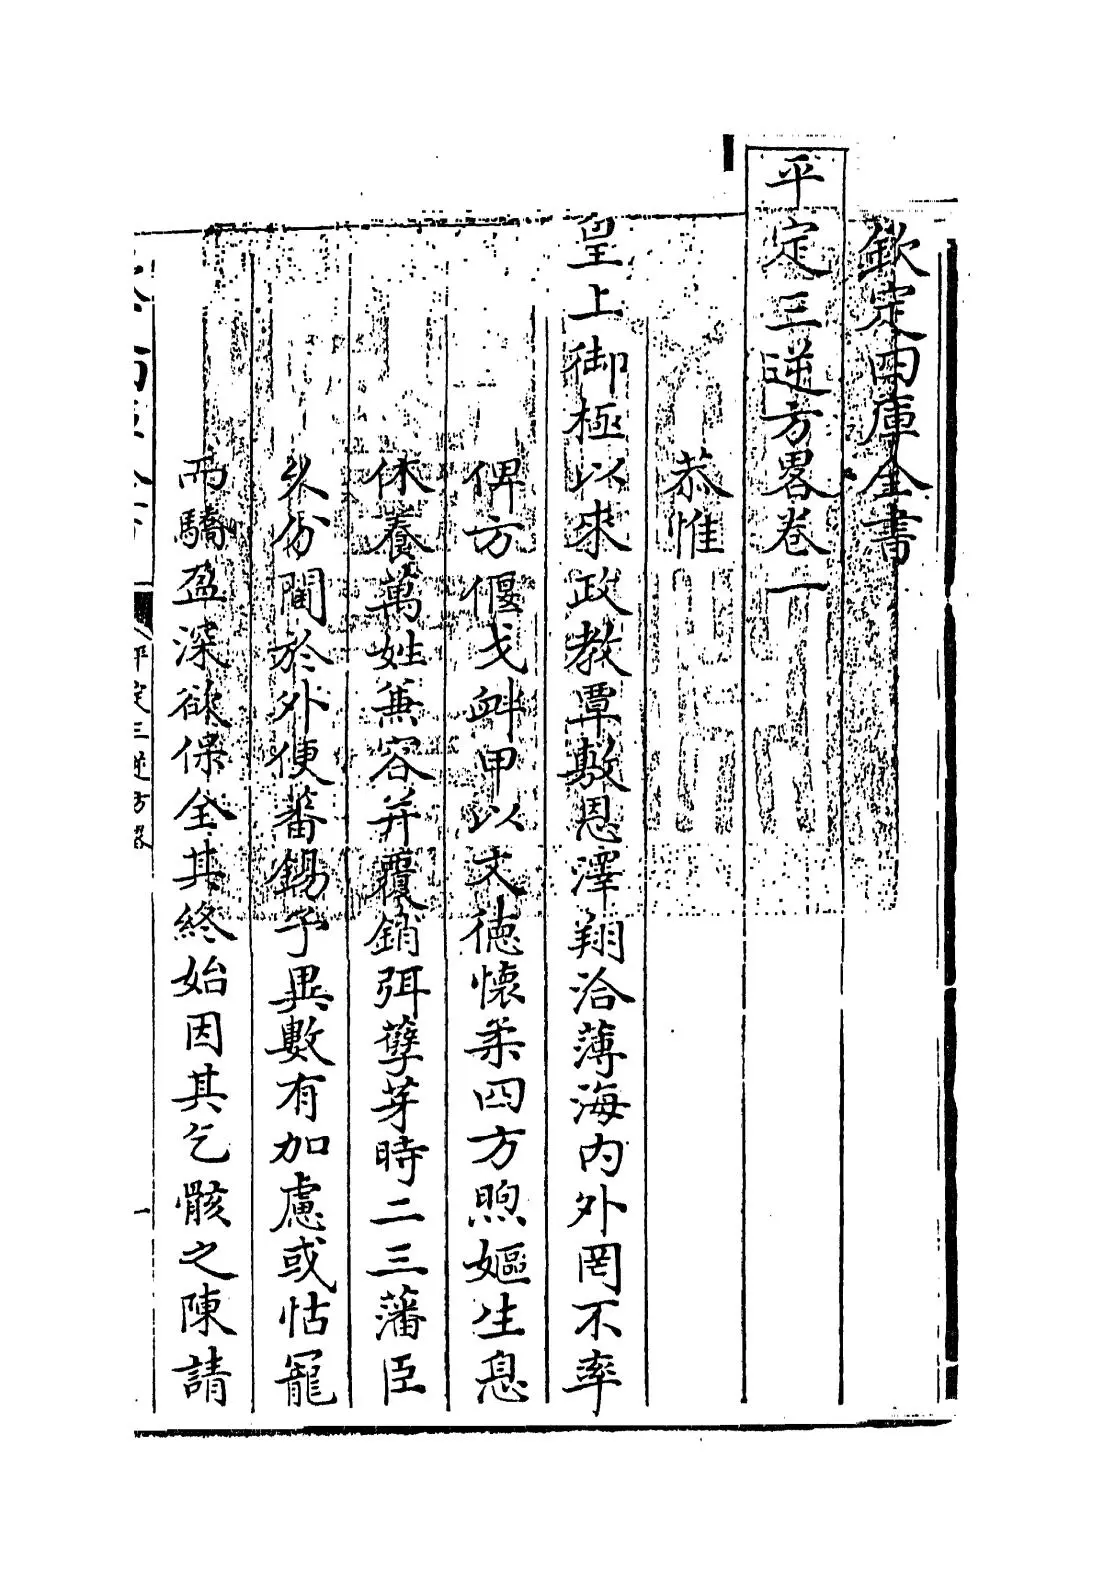 欽定四庫全書
平定三逆方畧卷一
恭惟
皇上御極以來政教覃敷恩澤翔洽薄海内外罔不率
俾方偃戈衅甲以文徳懐柔四方煦嫗生息
休養萬姓兼容并覆銷弭孽芽時二三藩臣
久分閫於外便蕃錫予異數有加慮或怙寵
而驕盈深欲保全其終始因其乞骸之陳請
平定三逆方畧
一